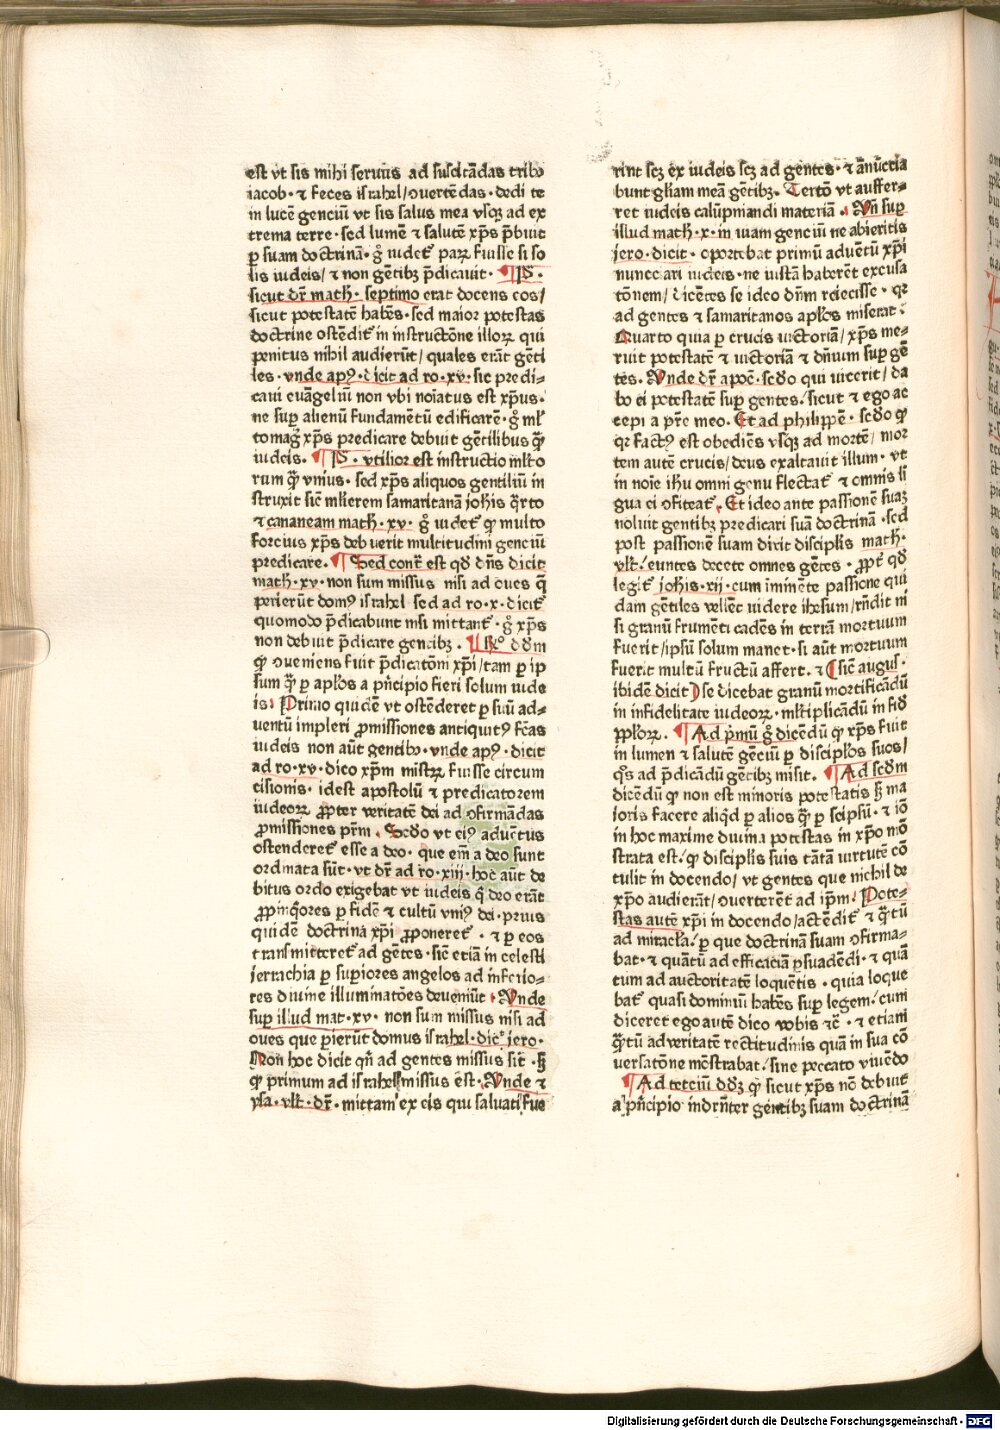 est vt sis mihi seruus ad suscitādas tribo
iacob · ⁊ feces israhel / ꝯuertēdas · dedi te
in lucē genciū vt sis salus mea vsqꝫ ad ex
trema terre · sed lumē ⁊ salutē xp̄s p̄buit
ꝑ suam doctrinā · gͦ iudet᷑ paꝝ fuisse si so
lis iudeis / ⁊ non gētibꝫ p̄dicauit · ¶ Pͣ ·
sicut dr̄ math · septimo erat docens eos /
sicut potestatē habēs · sed maior potestas
doctrine ostēdit᷑ in instructōne illoꝝ qui
penitus nihil audierūt / quales erāt gēti
les · vnde apꝰ · dicit ad ro · xv · sic predi-
caui euāgeliū non vbi noīatus est xp̄us ·
ne suꝑ alienū fundamētū edificarē · gͦ ml̄
tomagꝭ xp̄s predicare debuit gētilibus ꝙ̄
iudeis · ¶ Pͣ · vtilior est instructio ml̄to
rum ꝙ̄ vnius · sed xp̄s aliquos gentiliū in
struxit sic̄ ml̄ierem samaritanā joh̄is q̄rto
⁊ cananeam math · xv · gͦ iudet᷑ ꝙ multo
forcius xp̄s debuerit multitudini genciū
predicare · ¶ Sed contͣ est qd̄ dn̄s dicit
math · xv · non sum missus nisi ad oues q̄
perierūt domꝰ israhel · sed ad ro · x · dicit᷑
quomodo p̄dicabunt nisi mittant᷑ · gͦ xp̄s
non debuit p̄dicare gentibꝫ · ¶ Rͦ dd̄m
ꝙ ꝯueniens fuit p̄dicatōni xp̄i / tam ꝑ ip
sum ꝙ̄ ꝑ apl̄os a pͥncipio fieri solum iude
is : Primo quidē vt ostēderet ꝑ suū ad-
uentū impleri ꝓmissiones antiquitꝰ fc̄as
iudeis non aūt gentibꝫ · vnde apꝰ · dicit
ad ro · xv · dico xp̄m mistꝝ fuisse circum
cisionis · idest apostolū ⁊ predicatorem
iudeoꝝ ꝓpter veritatē dei ad ꝯfirmādas
ꝓmissiones pr̄m · Scd̄o vt eiꝰ aduētus
ostenderet᷑ esse a deo · que em̄ a deo sunt
ordinata sūt · vt dr̄ ad ro · xiij · hoc aūt de
bitus ordo exigebat vt iudeis qͥ deo erāt
ꝓpinq̄ores ꝑ fidē ⁊ cultū vniꝰ dei · prius
quidē doctrina xp̄i ꝓponeret᷑ · ⁊ ꝑ eos
transmitteret᷑ ad gētes · sic̄ etiā in celesti
jerrachia ꝑ suꝑiores angelos ad inferio-
res diuine illuminatōes deueniūt · Vnde
suꝑ illud mat · xv · non sum missus nisi ad
oues que ꝑierūt domus israhel · dic̄ jero ·
Non hoc dicit qn̄ ad gentes missus sit · sꝫ
ꝙ primum ad israhel missus est · Vnde ⁊
ysa · vlt᷑ · dr̄ · mittam ex eis qui saluati fue
rint scꝫ ex iudeis scꝫ ad gentes · ⁊ ānūctia
bunt gl̄iam meā gētibꝫ · Tertō vt auffer-
ret iudeis calūpniandi materiā · Vn̄ suꝑ
illud math · x · in uiam genciū ne abieritis
jero · dicit · oportebat primū aduētū xp̄i
nuncciari iudeis · ne iustā haberēt excusa
tōnem / dicētes se ideo dn̄m reiecisse · qꝛ
ad gentes ⁊ samaritanos apl̄os miserat :
Quarto quia ꝑ crucis uictoriā / xp̄s me-
ruit potestatē ⁊ uictoriā ⁊ dn̄ium suꝑ gē
tes · Vnde dr̄ apoc̄ · scd̄o qui uicerit / da
bo ei potestatē suꝑ gentes / sicut ⁊ ego ac
cepi a pr̄e meo · Et ad philippē · scd̄o ꝙ
qꝛ factꝰ est obediēs vsqꝫ ad mortē / mor
tem autē crucis / deus exaltauit illum · vt
in noīe ih̄u omni genu flectat᷑ ⁊ omnis li
gua ei ꝯfiteat᷑ · Et ideo ante passionē suaꝫ
noluit gentibꝫ predicari suā doctrinā · sed
post passionē suam dixit discipl̄is math ·
vlt᷑ / euntes docete omnes gētes · ꝓpt᷑ qd̄
legit᷑ joh̄is · xij · cum iminēte passione qui
dam gētiles vellēt uidere ih̄esum / rn̄dit ni
si granū frumēti cadēs in terrā mortuum
fuerit / ipsū solum manet · si aūt mortuum
fuerit multū fructū affert · ⁊ sic̄ augus ·
ibidē dicit se dicebat granū mortificādū
in infidelitate iudeoꝝ · ml̄tiplicādū in fid̄
pp̄loꝝ · ¶ Ad pͥmū gͦ dicēdū ꝙ xp̄s fuit
in lumen ⁊ salutē gēciū ꝑ discipl̄os suos /
qͦs ad p̄dicādū gētibꝫ misit · ¶ Ad scd̄m
dicēdū ꝙ non est minoris potestatis sꝫ ma
ioris facere aliqͥd ꝑ alios ꝙ̄ ꝑ seipsū · ⁊ iō
in hoc maxime diuina potestas in xp̄o mō
strata est / ꝙ discipl̄is suis tātā uirtutē cō
tulit in docendo / vt gentes que nichil de
xp̄o audierāt / ꝯuerterēt᷑ ad ip̄m / Pote-
stas autē xp̄i in docendo / actēdit᷑ ⁊ qͣ̄tū
ad miracl̄a / ꝑ que doctrinā suam ꝯfirma-
bat · ⁊ quātū ad efficaciā ꝑsuadēdi · ⁊ quā
tum ad auctoritatē loquētis · quia loque
bat᷑ quasi dominiū habēs suꝑ legem / cum
diceret ego autē dico vobis ⁊c̄ · ⁊ etiam
qͣ̄tū ad veritatē rectitudinis quā in sua cō
uersatōne mōstrabat / sine peccato viuēdo
¶ Ad terciū dd̄ꝫ ꝙ sicut xp̄s nō debuit
a pͥncipio indrn̄ter gētibꝫ suam doctrinā
Digitalisierung gefördert durch die Deutsche Forschungsgemeinschaft - DFG